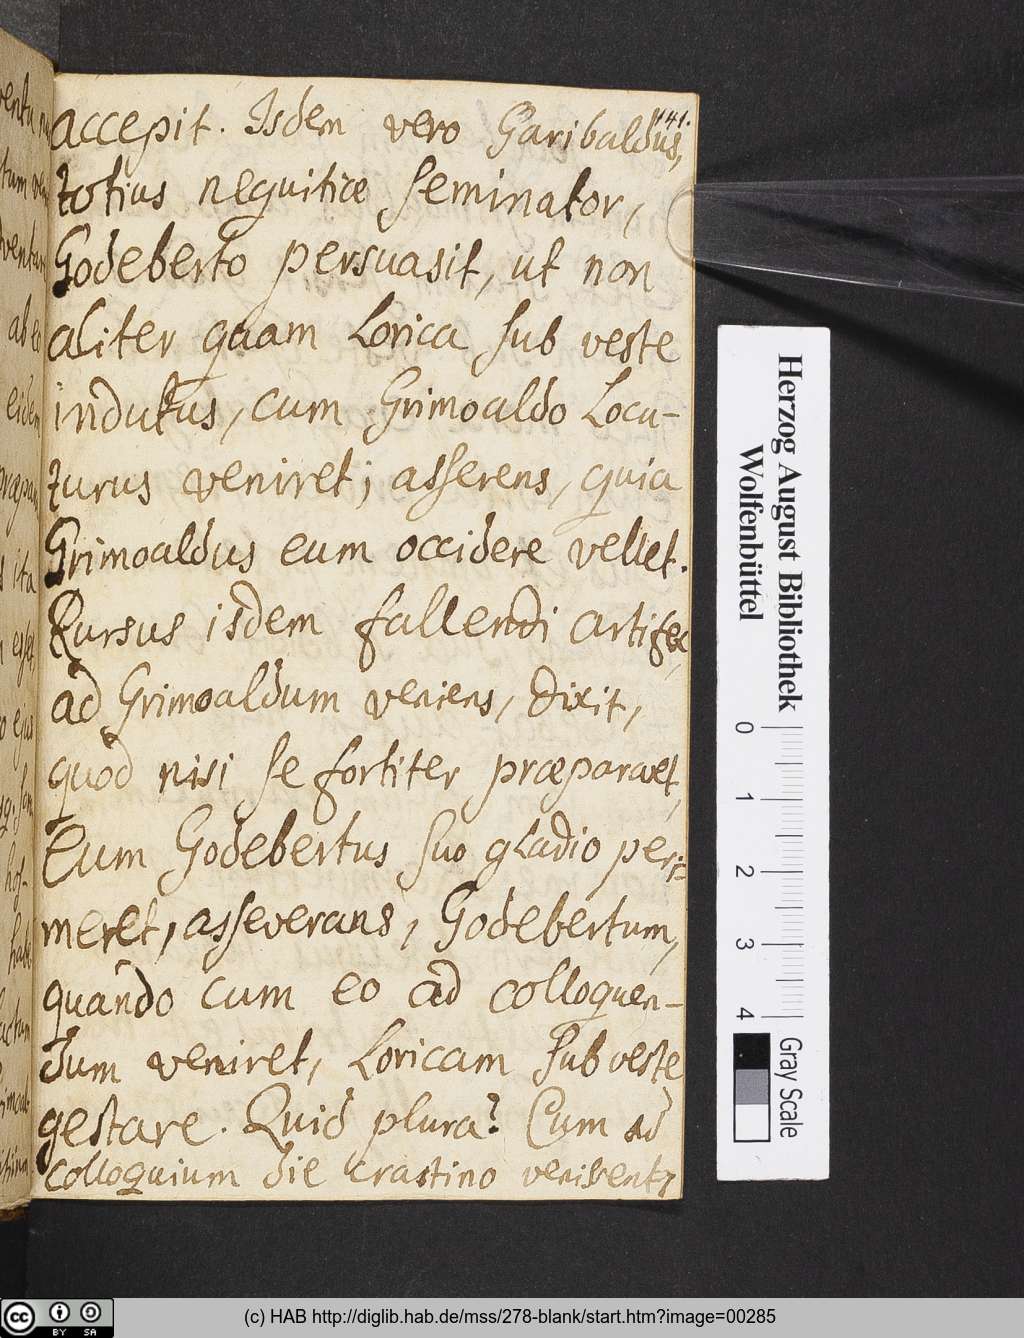 141.
accepit. Isdem vero Garibaldus,
totius nequitiæ seminator,
Godeberto persuasit, ut non
aliter quam Lorica sub veste
indutus, cum Grimoaldo Locu-
turus veniret; asserens, quia
Grimoaldus eum occidere vellet.
Rursus isdem fallendi artifex,
ad Grimoaldum veniens, dixit,
quod nisi se fortiter præparaet,
Eum Godebertus suo gladio peri-
meret, asseverans, Godebertum,
quando cum eo ad colloquen-
dum veniret, Loricam sub veste
gestare. Quid plura? Cum ad
colloquium die crastino venissent,
ab eo
eidem
s ita
Herzog August Bibliothek
Wolfenbüttel
0 1 2 3 4
Gray Scale
cc BY SA
(c) HAB http://diglib.hab.de/mss/278-blank/start.htm?image=00285